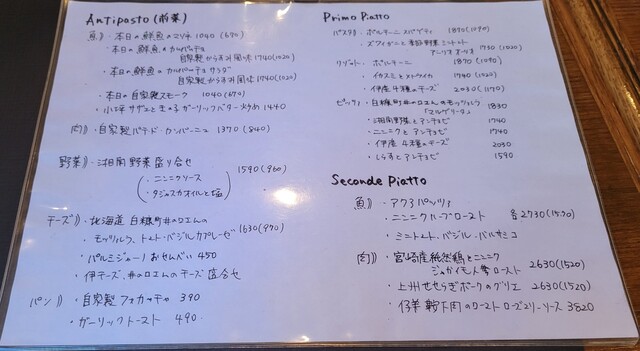 Antipasto (前菜)
魚》・本日の鮮魚のマリネ 1040 (690)
・本日の鮮魚のカルパッチョ
自家製からすみ風味 1740 (1020)
・本日の鮮魚のカルパッチョサラダ
自家製からすみ風味 1740 (1020)
・本日の自家製スモーク 1040 (690)
・小坪サザエときの子ガーリックバター炒め 1440
肉》・自家製パテ・ド・カンパーニュ 1370 (840)
野菜》・湘南野菜盛り合せ 1590 (960)
・ニンニクソース
・タジャスカオイルと塩
チーズ》・北海道 白糠町 井ノ口さんの
モッツァレラ、トマト・バジルカプレーゼ 1630 (990)
・パルミジャーノおせんべい 450
・伊チーズ、井ノ口さんのチーズ盛合せ
パン》・自家製フォカッチャ 390
・ガーリックトースト 490
Primo Piatto
パスタ》・ポルチーニ スパゲティ 1890 (1090)
・ズワイガニと季節野菜 ミニトマト
アーリオオーリオ 1730 (1020)
リゾット》・ポルチーニ 1890 (1090)
・イカスミとスルメイカ 1740 (1020)
・伊産4種のチーズ 2030 (1190)
ピッツァ》・白糠町井ノ口さんのモッツァレラ 1830
「マルゲリータ」
・湘南野菜とアンチョビ 1740
・ニンニクとアンチョビ 1740
・伊産4種のチーズ 2030
・しらすとアンチョビ 1590
Seconde Piatto
魚》・アクアパッツァ
・ニンニクハーブロースト 各2730 (1590)
・ミニトマト、バジル・バルサミコ
肉》・宮崎産純然鶏とニンニク
ジャガイモ人参ロースト 2630 (1520)
・上州せせらぎポークのグリエ 2630 (1520)
・仔羊鞍下肉のロースト ローズマリーソース 3820